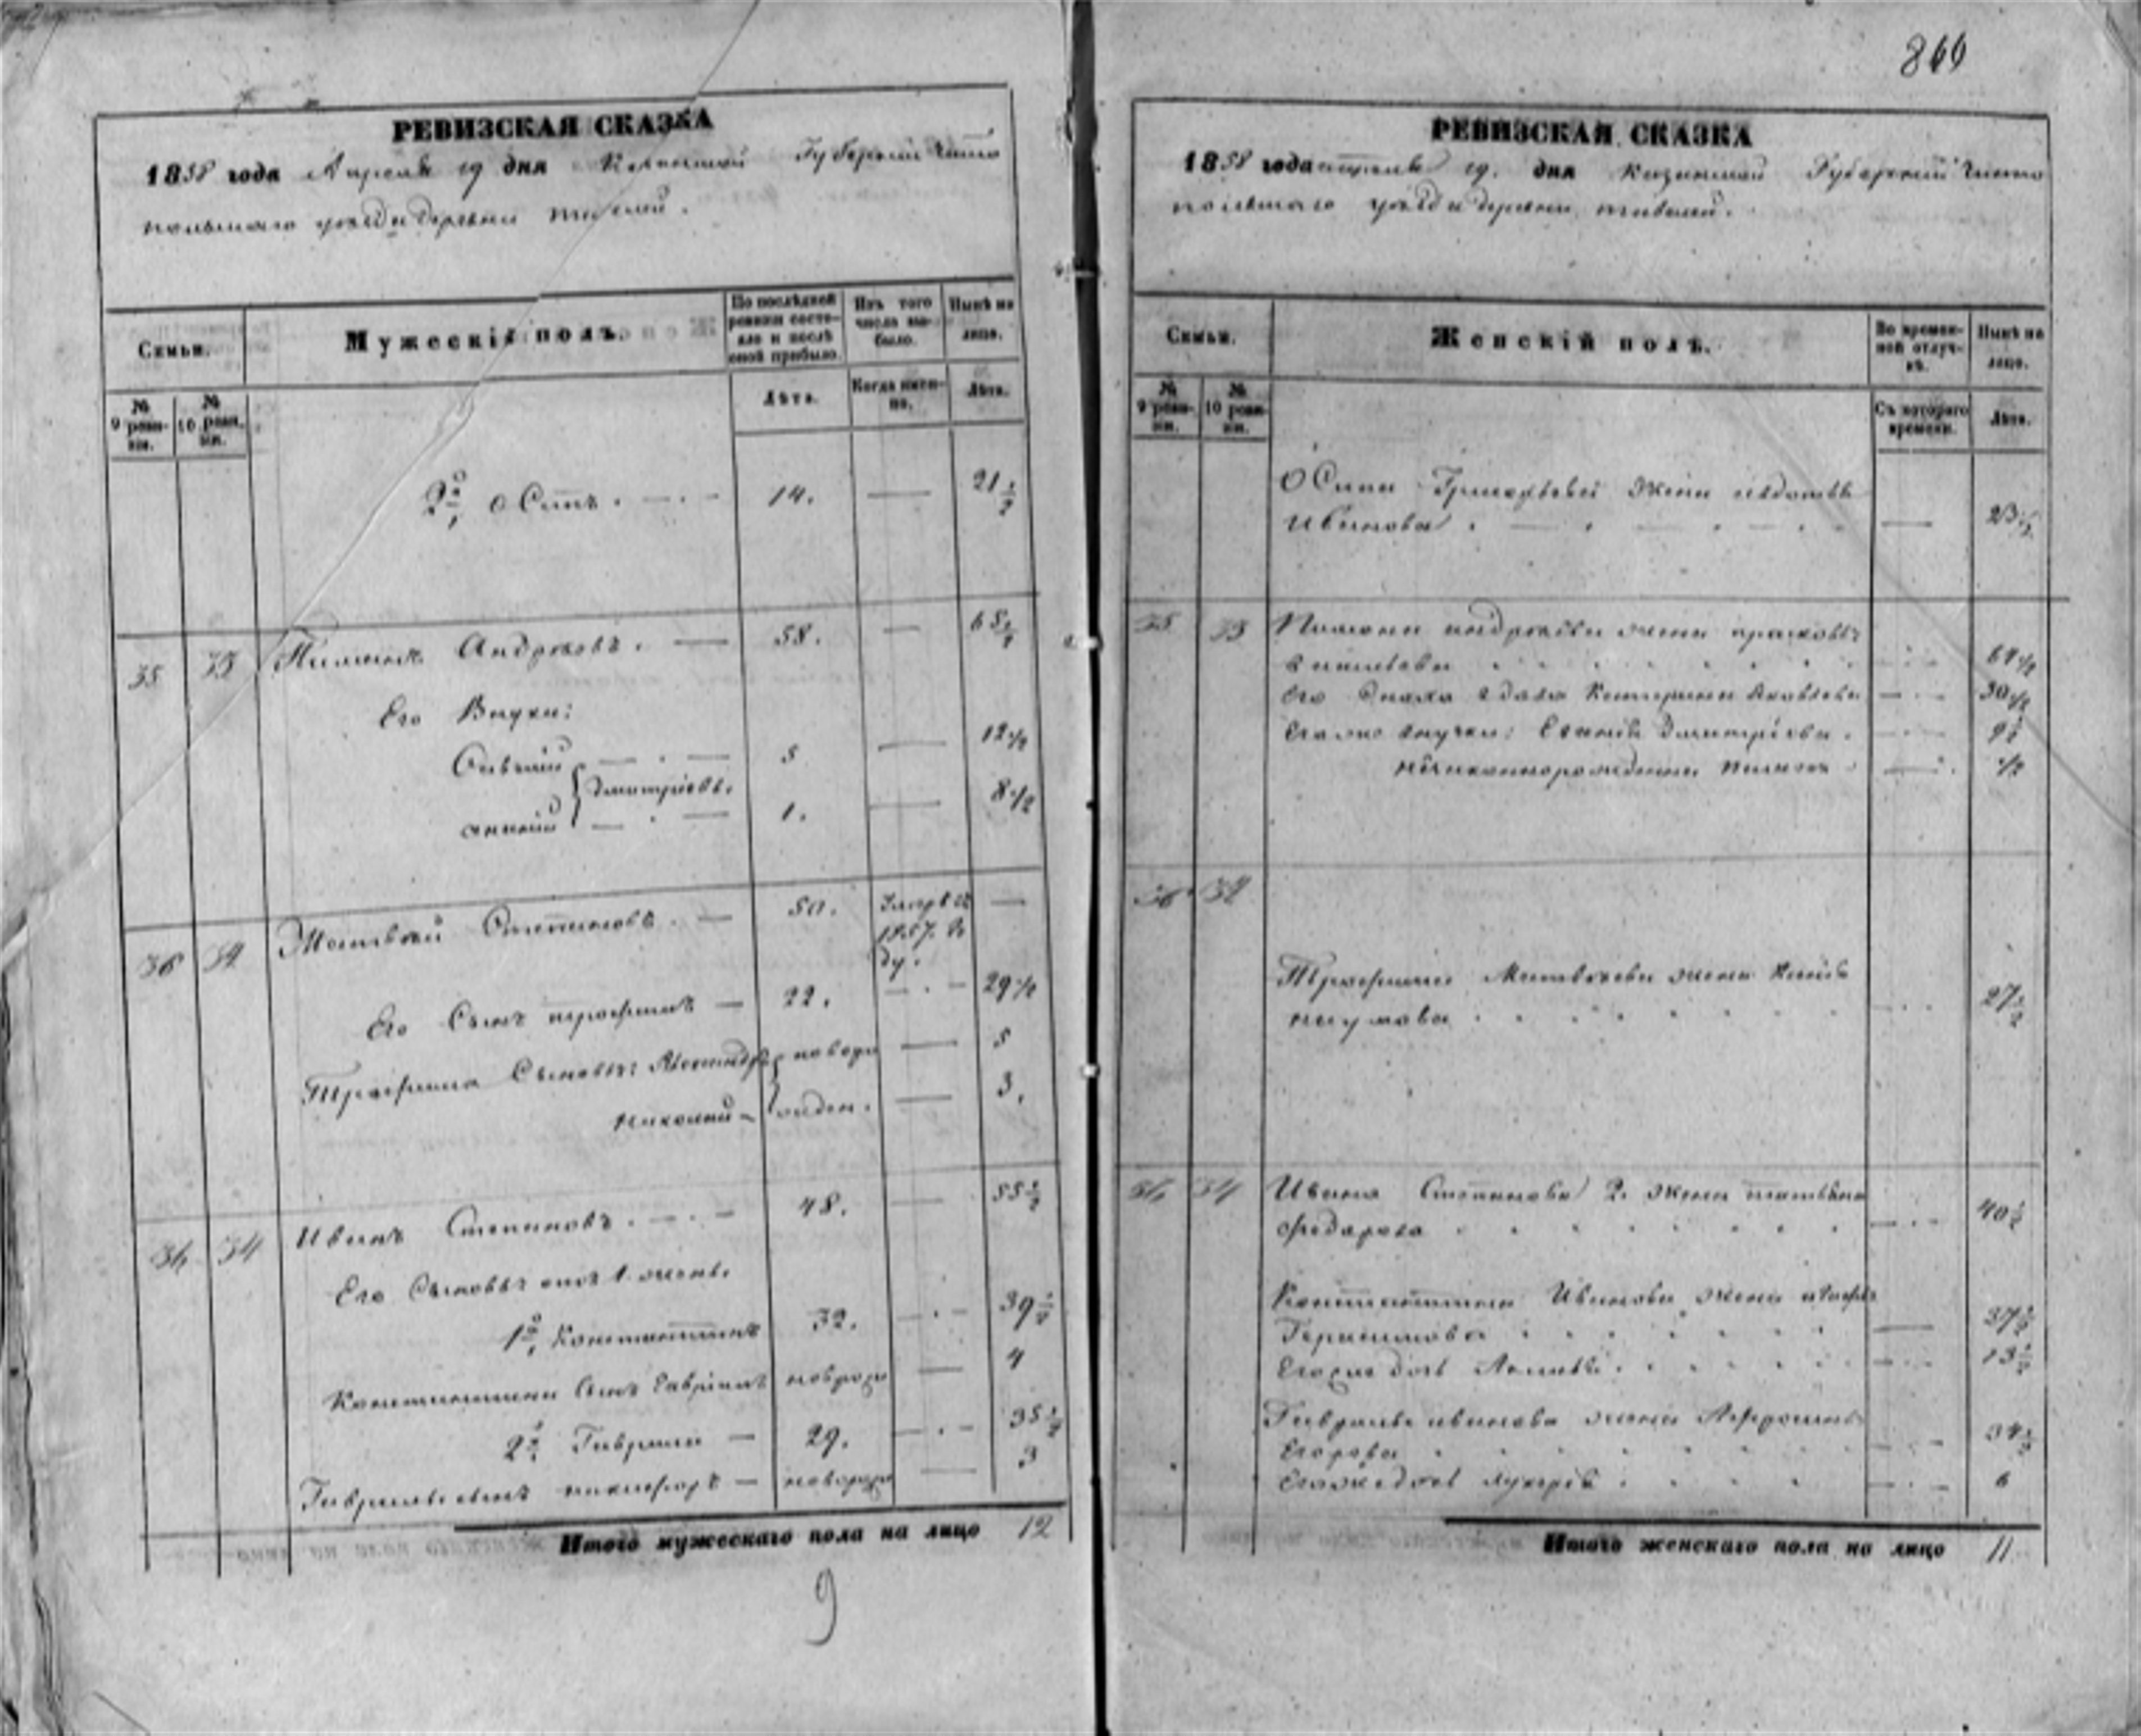 866
РЕВИЗСКАЯ СКАЗКА
1858 года Апреля 19 дня Казанской Губернии Чисто
польскаго уезда деревни
Семьи.
Мужескій полъ.
По послѣдней ревизіи состояло и послѣ оной прибыло.
Изъ того числа выбыло.
Нынѣ на лицо.
№ 9 ревизіи.
№ 10 ревизіи.
Лѣта.
Когда именно.
Лѣта.
2й Осипъ. 14. — 21 1/2
35 33 Андреевъ. — 58. — 65 1/2
Его Внуки:
5 — 12 1/2
Дмитріевы.
1. — 8 1/2
36 34 Матвей Степановъ. — 50. 1857 го —
ду.
Его Сынъ трофимъ — 22. — 29 1/2
Трофима Сыновья: Александръ новоро — 5
николай — жден. — 3.
36 34 Иванъ Степановъ. — 48. — 55 1/2
Его Сыновья отъ 1. жены.
1й, Константинъ 32. — 39 1/2
Константина Сынъ Гаврилъ новорож — 4
2й, Гаврила — 29. — 35 1/2
Гаврилы сынъ никифоръ — новорож — 3
Итого мужескаго пола на лицо 12
9
РЕВИЗСКАЯ СКАЗКА
1858 года апреля 19. дня Казанской Губерніи Чисто
польскаго уезда деревни
Семьи.
Женскій полъ.
Во временной отлучкѣ.
Нынѣ на лицо.
№ 9 ревизіи.
№ 10 ревизіи.
Съ котораго времени.
Лѣта.
Осипа Григорьева жена
Иванова — 23 1/2
35 33 андреева жена прасковья
64 1/2
Его Сноха вдова Катерина Яковлева — 30 1/2
Его же внучки: Дмитріева. — 9 1/2
незаконнорожденная — 1/2
36 34
Трофима Матвеева жена
наумова 27 1/2
36 34 Ивана Степанова 2. жена татьяна
федорова — 40 1/2
Константина Иванова жена
Герасимова — 37 1/2
Его же дочь — 13 1/2
Гаврилы иванова жена
Егорова — 34 1/2
Его же дочь — 6
Итого женскаго пола на лицо 11